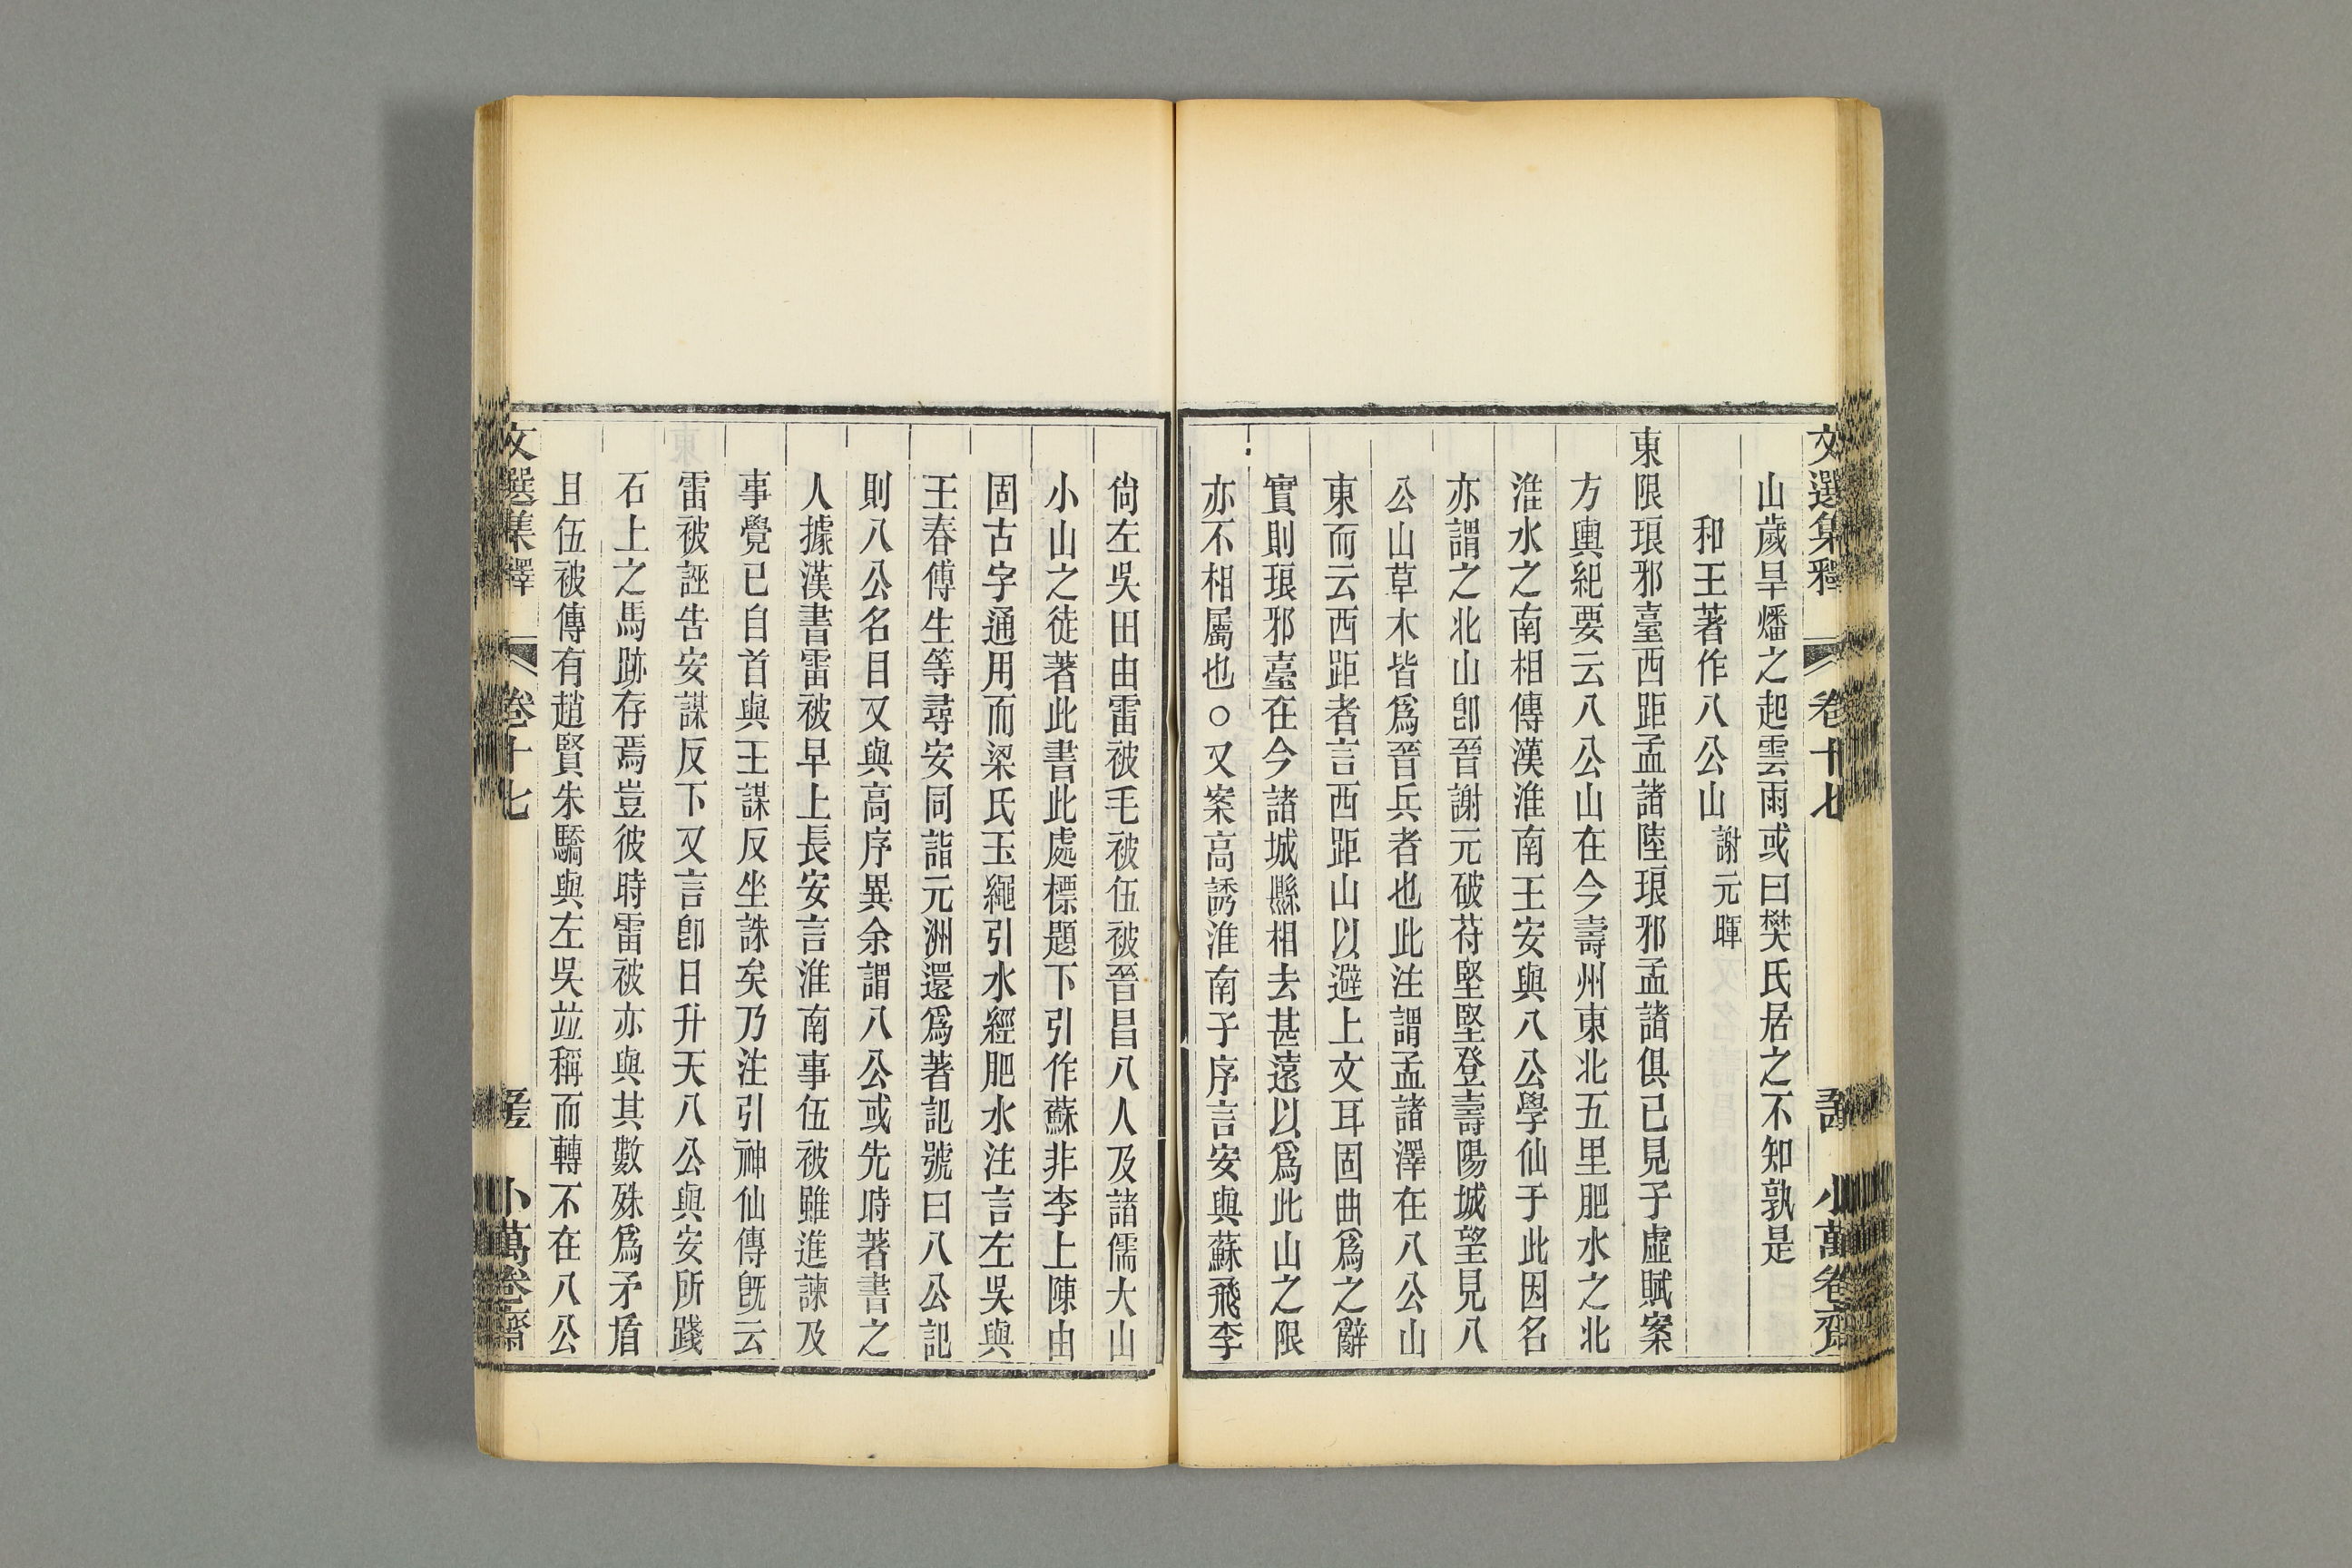 文選集釋 卷十七 小萬卷齋
山歲旱燔之起雲雨或曰樊氏居之不知孰是
和王著作八公山 謝元暉
東限琅邪臺西距孟諸陸琅邪孟諸俱已見子虛賦案
方輿紀要云八公山在今壽州東北五里肥水之北
淮水之南相傳漢淮南王安與八公學仙于此因名
亦謂之北山卽晉謝元破苻堅堅登壽陽城望見八
公山草木皆爲晉兵者也此注謂孟諸澤在八公山
東而云西距者言西距山以避上文耳固曲爲之辭
實則琅邪臺在今諸城縣相去甚遠以爲此山之限
亦不相屬也○又案高誘淮南子序言安與蘇飛李
尙左吳田由雷被毛被伍被晉昌八人及諸儒大山
小山之徒著此書此處標題下引作蘇非李上陳由
固古字通用而梁氏玉繩引水經肥水注言左吳與
王春傅生等尋安同詣元洲還爲著記號曰八公記
則八公名目又與高序異余謂八公或先時著書之
人據漢書雷被早上長安言淮南事伍被雖進諫及
事覺已自首與王謀反坐誅矣乃注引神仙傳旣云
雷被誣告安謀反下又言卽日升天八公與安所踐
石上之馬跡存焉豈彼時雷被亦與其數殊爲矛盾
且伍被傳有趙賢朱驕與左吳竝稱而轉不在八公
文選集釋 卷十七 小萬卷齋